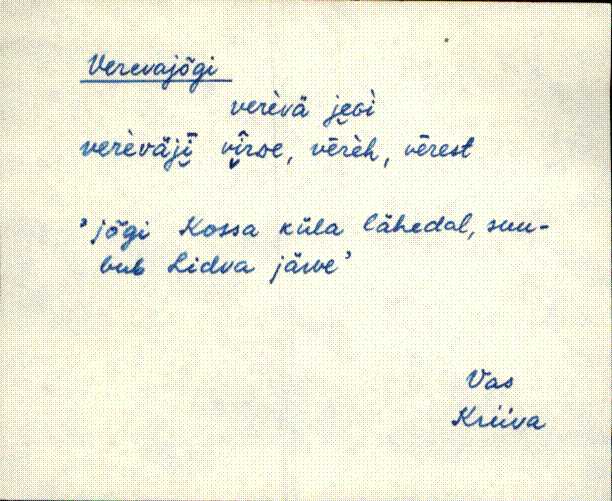 Verevajõgi
verèvä jegì
verèväji vîroe, vērèh, vērest
'jõgi Kossa küla lähedal, suu-
bub Lidva järve'
Vas
Kriiva